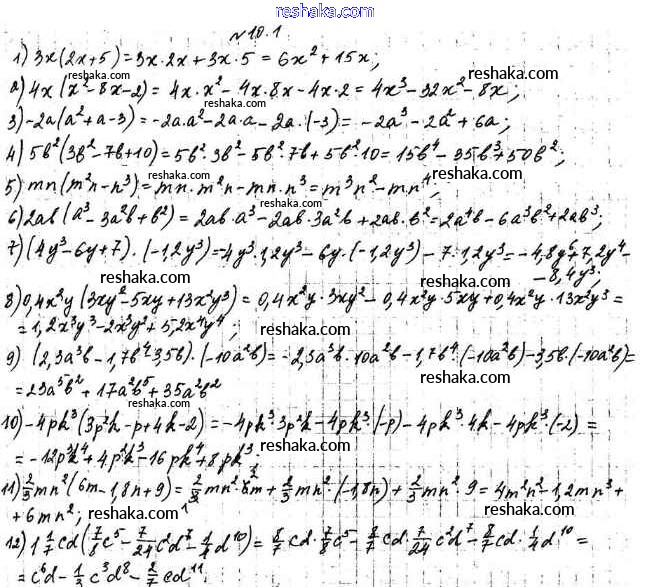 reshaka.com
№10.1
1) 3x(2x+5)=3x·2x+3x·5=6x²+15x;
reshaka.com reshaka.com
2) 4x(x²-8x-2)=4x·x²-4x·8x-4x·2=4x³-32x²-8x;
reshaka.com
3) -2a(a²+a-3)=-2a·a²-2a·a-2a·(-3)=-2a³-2a²+6a;
4) 5b²(3b²-7b+10)=5b²·3b²-5b²·7b+5b²·10=15b⁴-35b³+50b²;
reshaka.com reshaka.com
5) mn(m²n-n³)=mn·m²n-mn·n³=m³n²-mn⁴;
reshaka.com
6) 2ab(a³-3a²b+b²)=2ab·a³-2ab·3a²b+2ab·b²=2a⁴b-6a³b²+2ab³;
7) (4y³-6y+7)·(-1,2y³)=-4y³·1,2y³-6y·(-1,2y³)-7·1,2y³=-4,8y⁶+7,2y⁴-
-8,4y³;
reshaka.com reshaka.com
8) 0,4x²y(3xy²-5xy+13x²y³)=0,4x²y·3xy²-0,4x²y·5xy+0,4x²y·13x²y³=
=1,2x³y³-2x³y²+5,2x⁴y⁴;
reshaka.com
9) (2,3a³b-1,7b⁴-3,5b)·(-10a²b)=-2,3a³b·10a²b-1,7b⁴·(-10a²b)-3,5b·(-10a²b)=
=23a⁵b²+17a²b⁵+35a²b²
reshaka.com reshaka.com
10) -4pk³(3p²k-p+4k-2)=-4pk³·3p²k-4pk³·(-p)-4pk³·4k-4pk³·(-2)=
reshaka.com
=-12p³k⁴+4p²k³-16pk⁴+8pk³
11) 2/3mn²(6m-1,8n+9)=2/3mn²·6m+2/3mn²·(-1,8n)+2/3mn²·9=4m²n²-1,2mn³+
+6mn²;
reshaka.com reshaka.com
12) 1 1/7cd(7/8c⁵-7/24c²d⁷-1/4d¹⁰)=8/7cd·7/8c⁵-8/7cd·7/24c²d⁷-8/7cd·1/4d¹⁰=
=c⁶d-1/3c³d⁸-2/7cd¹¹.
reshaka.com